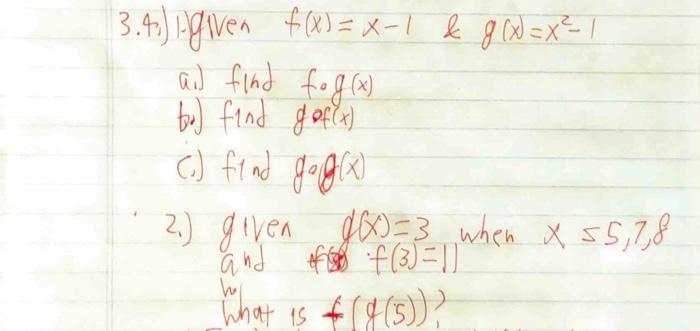 3.4.) 1.) given f(x) = x-1 & g(x) = x²-1
a.) find fog(x)
b.) find gof(x)
c.) find gog(x)
2.) given g(x)=3 when x ≤ 5,7,8
and f(3)=11
what is f(g(5))?